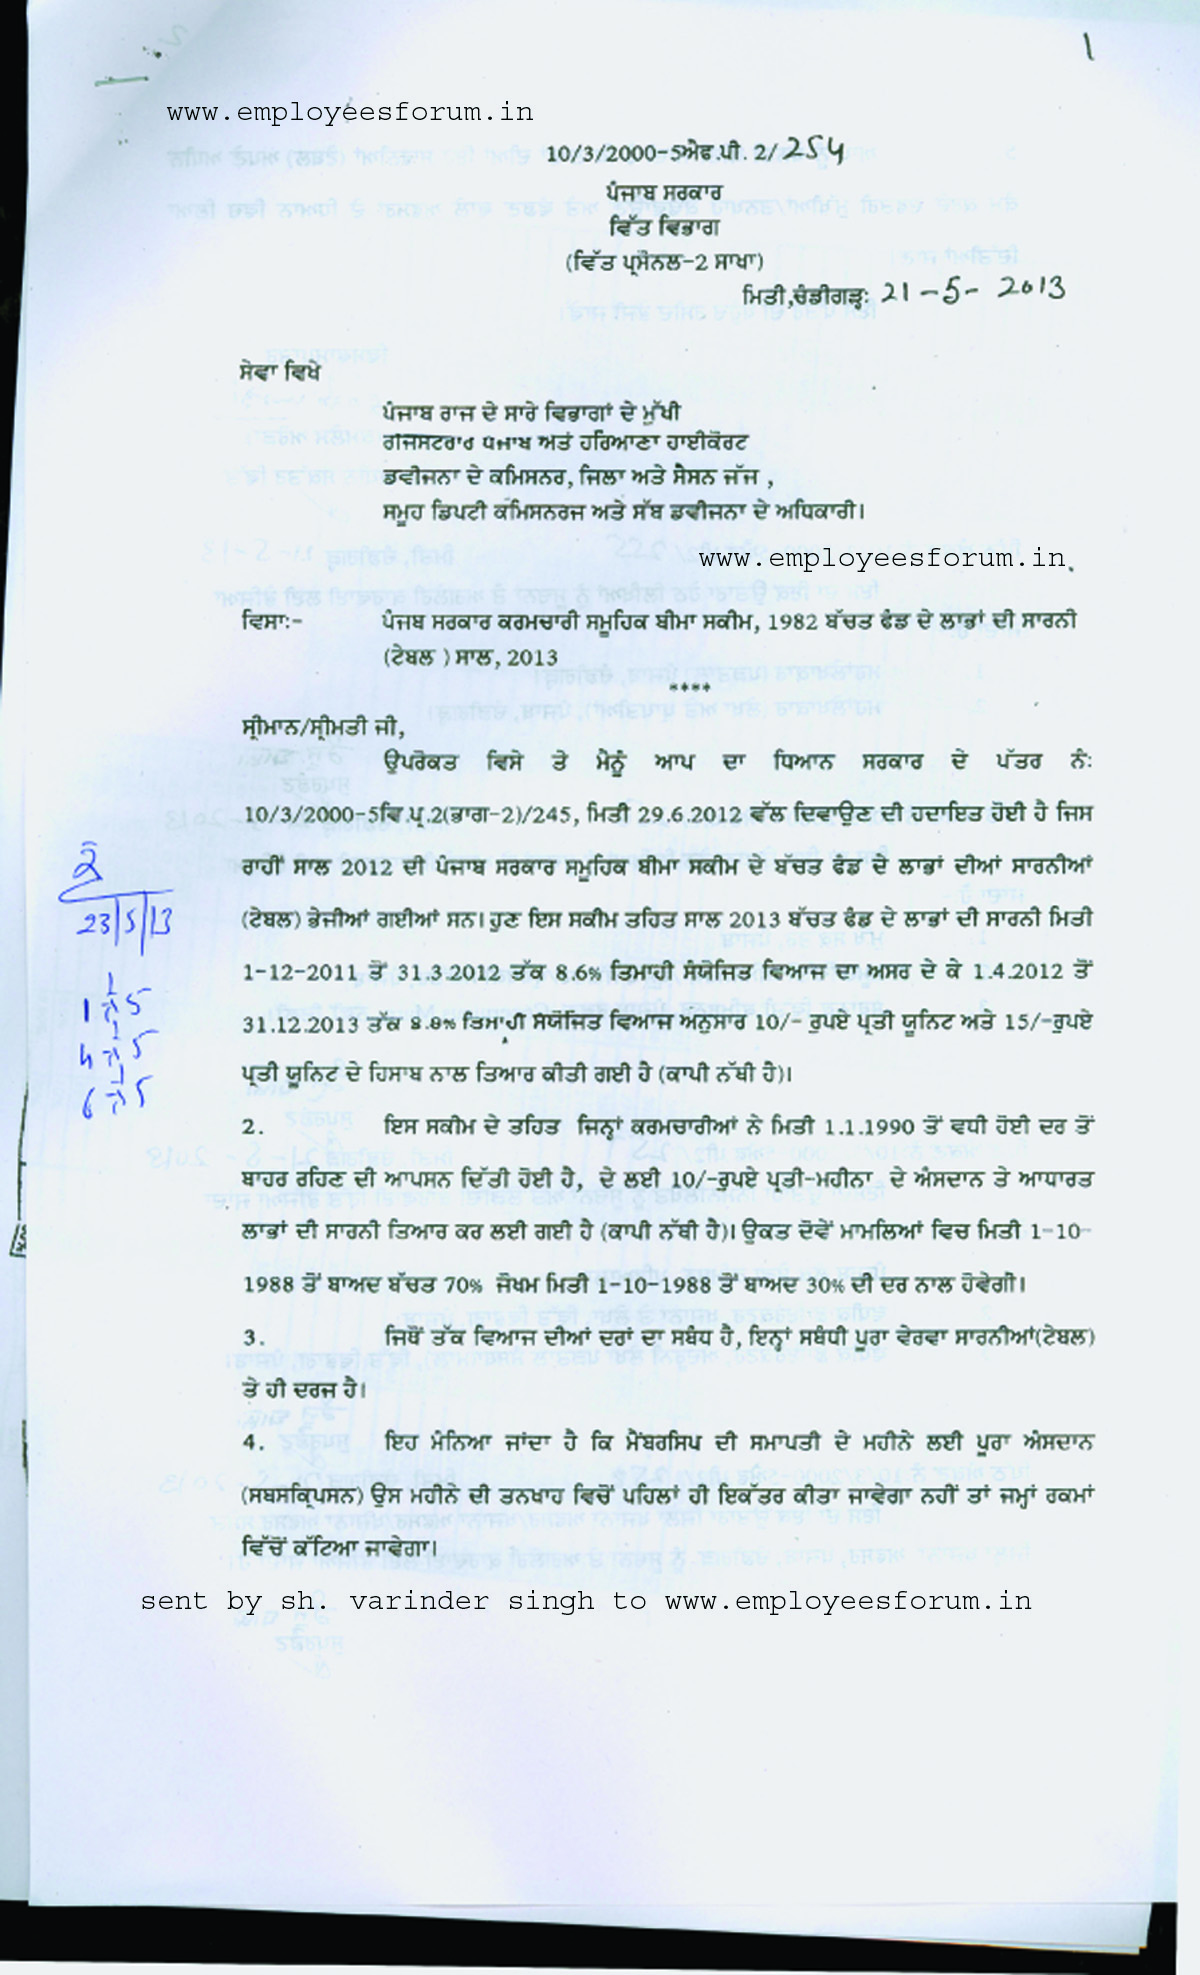 1
www.employeesforum.in
10/3/2000-5ਐਫ.ਪੀ. 2/254
ਪੰਜਾਬ ਸਰਕਾਰ
ਵਿੱਤ ਵਿਭਾਗ
(ਵਿੱਤ ਪ੍ਰਸੋਨਲ-2 ਸਾਖਾ)
ਮਿਤੀ,ਚੰਡੀਗੜ੍ਹ: 21-5-2013
ਸੇਵਾ ਵਿਖੇ
ਪੰਜਾਬ ਰਾਜ ਦੇ ਸਾਰੇ ਵਿਭਾਗਾਂ ਦੇ ਮੁੱਖੀ
ਰਜਿਸਟਰਾਰ ਪੰਜਾਬ ਅਤੇ ਹਰਿਆਣਾ ਹਾਈਕੋਰਟ
ਡਵੀਜਨਾ ਦੇ ਕਮਿਸਨਰ, ਜਿਲਾ ਅਤੇ ਸੈਸਨ ਜੱਜ ,
ਸਮੂਹ ਡਿਪਟੀ ਕਮਿਸਨਰਜ ਅਤੇ ਸੱਬ ਡਵੀਜਨਾ ਦੇ ਅਧਿਕਾਰੀ।
www.employeesforum.in
ਵਿਸਾ:- ਪੰਜਬ ਸਰਕਾਰ ਕਰਮਚਾਰੀ ਸਮੂਹਿਕ ਬੀਮਾ ਸਕੀਮ, 1982 ਬੱਚਤ ਫੰਡ ਦੇ ਲਾਭਾਂ ਦੀ ਸਾਰਨੀ
(ਟੇਬਲ ) ਸਾਲ, 2013
****
ਸ੍ਰੀਮਾਨ/ਸ੍ਰੀਮਤੀ ਜੀ,
ਉਪਰੋਕਤ ਵਿਸੇ ਤੇ ਮੈਨੂੰ ਆਪ ਦਾ ਧਿਆਨ ਸਰਕਾਰ ਦੇ ਪੱਤਰ ਨੰ:
10/3/2000-5ਵਿ.ਪ੍ਰ.2(ਭਾਗ-2)/245, ਮਿਤੀ 29.6.2012 ਵੱਲ ਦਿਵਾਉਣ ਦੀ ਹਦਾਇਤ ਹੋਈ ਹੈ ਜਿਸ
ਰਾਹੀਂ ਸਾਲ 2012 ਦੀ ਪੰਜਾਬ ਸਰਕਾਰ ਸਮੂਹਿਕ ਬੀਮਾ ਸਕੀਮ ਦੇ ਬੱਚਤ ਫੰਡ ਦੇ ਲਾਭਾਂ ਦੀਆਂ ਸਾਰਨੀਆਂ
(ਟੇਬਲ) ਭੇਜੀਆਂ ਗਈਆਂ ਸਨ। ਹੁਣ ਇਸ ਸਕੀਮ ਤਹਿਤ ਸਾਲ 2013 ਬੱਚਤ ਫੰਡ ਦੇ ਲਾਭਾਂ ਦੀ ਸਾਰਨੀ ਮਿਤੀ
1-12-2011 ਤੋਂ 31.3.2012 ਤੱਕ 8.6% ਤਿਮਾਹੀ ਸੰਯੋਜਿਤ ਵਿਆਜ ਦਾ ਅਸਰ ਦੇ ਕੇ 1.4.2012 ਤੋਂ
31.12.2013 ਤੱਕ 8.8% ਤਿਮਾਹੀ ਸੰਯੋਜਿਤ ਵਿਆਜ ਅਨੁਸਾਰ 10/- ਰੁਪਏ ਪ੍ਰਤੀ ਯੂਨਿਟ ਅਤੇ 15/-ਰੁਪਏ
ਪ੍ਰਤੀ ਯੂਨਿਟ ਦੇ ਹਿਸਾਬ ਨਾਲ ਤਿਆਰ ਕੀਤੀ ਗਈ ਹੈ (ਕਾਪੀ ਨੱਥੀ ਹੈ)।
23/5/13
2. ਇਸ ਸਕੀਮ ਦੇ ਤਹਿਤ ਜਿਨ੍ਹਾਂ ਕਰਮਚਾਰੀਆਂ ਨੇ ਮਿਤੀ 1.1.1990 ਤੋਂ ਵਧੀ ਹੋਈ ਦਰ ਤੋਂ
ਬਾਹਰ ਰਹਿਣ ਦੀ ਆਪਸਨ ਦਿੱਤੀ ਹੋਈ ਹੈ, ਦੇ ਲਈ 10/-ਰੁਪਏ ਪ੍ਰਤੀ-ਮਹੀਨਾ ਦੇ ਅੰਸਦਾਨ ਤੇ ਆਧਾਰਤ
ਲਾਭਾਂ ਦੀ ਸਾਰਨੀ ਤਿਆਰ ਕਰ ਲਈ ਗਈ ਹੈ (ਕਾਪੀ ਨੱਥੀ ਹੈ)। ਉਕਤ ਦੋਵੇਂ ਮਾਮਲਿਆਂ ਵਿਚ ਮਿਤੀ 1-10-
1988 ਤੋਂ ਬਾਅਦ ਬੱਚਤ 70% ਜੋਖਮ ਮਿਤੀ 1-10-1988 ਤੋਂ ਬਾਅਦ 30% ਦੀ ਦਰ ਨਾਲ ਹੋਵੇਗੀ।
3. ਜਿਥੋਂ ਤੱਕ ਵਿਆਜ ਦੀਆਂ ਦਰਾਂ ਦਾ ਸਬੰਧ ਹੈ, ਇਨ੍ਹਾਂ ਸਬੰਧੀ ਪੂਰਾ ਵੇਰਵਾ ਸਾਰਨੀਆਂ(ਟੇਬਲ)
ਤੇ ਹੀ ਦਰਜ ਹੈ।
4. ਇਹ ਮੰਨਿਆ ਜਾਂਦਾ ਹੈ ਕਿ ਮੈਂਬਰਸਿਪ ਦੀ ਸਮਾਪਤੀ ਦੇ ਮਹੀਨੇ ਲਈ ਪੂਰਾ ਅੰਸਦਾਨ
(ਸਬਸਕ੍ਰਿਪਸਨ) ਉਸ ਮਹੀਨੇ ਦੀ ਤਨਖਾਹ ਵਿਚੋਂ ਪਹਿਲਾਂ ਹੀ ਇਕੱਤਰ ਕੀਤਾ ਜਾਵੇਗਾ ਨਹੀਂ ਤਾਂ ਜਮ੍ਹਾਂ ਰਕਮਾਂ
ਵਿੱਚੋਂ ਕੱਟਿਆ ਜਾਵੇਗਾ।
sent by sh. varinder singh to www.employeesforum.in